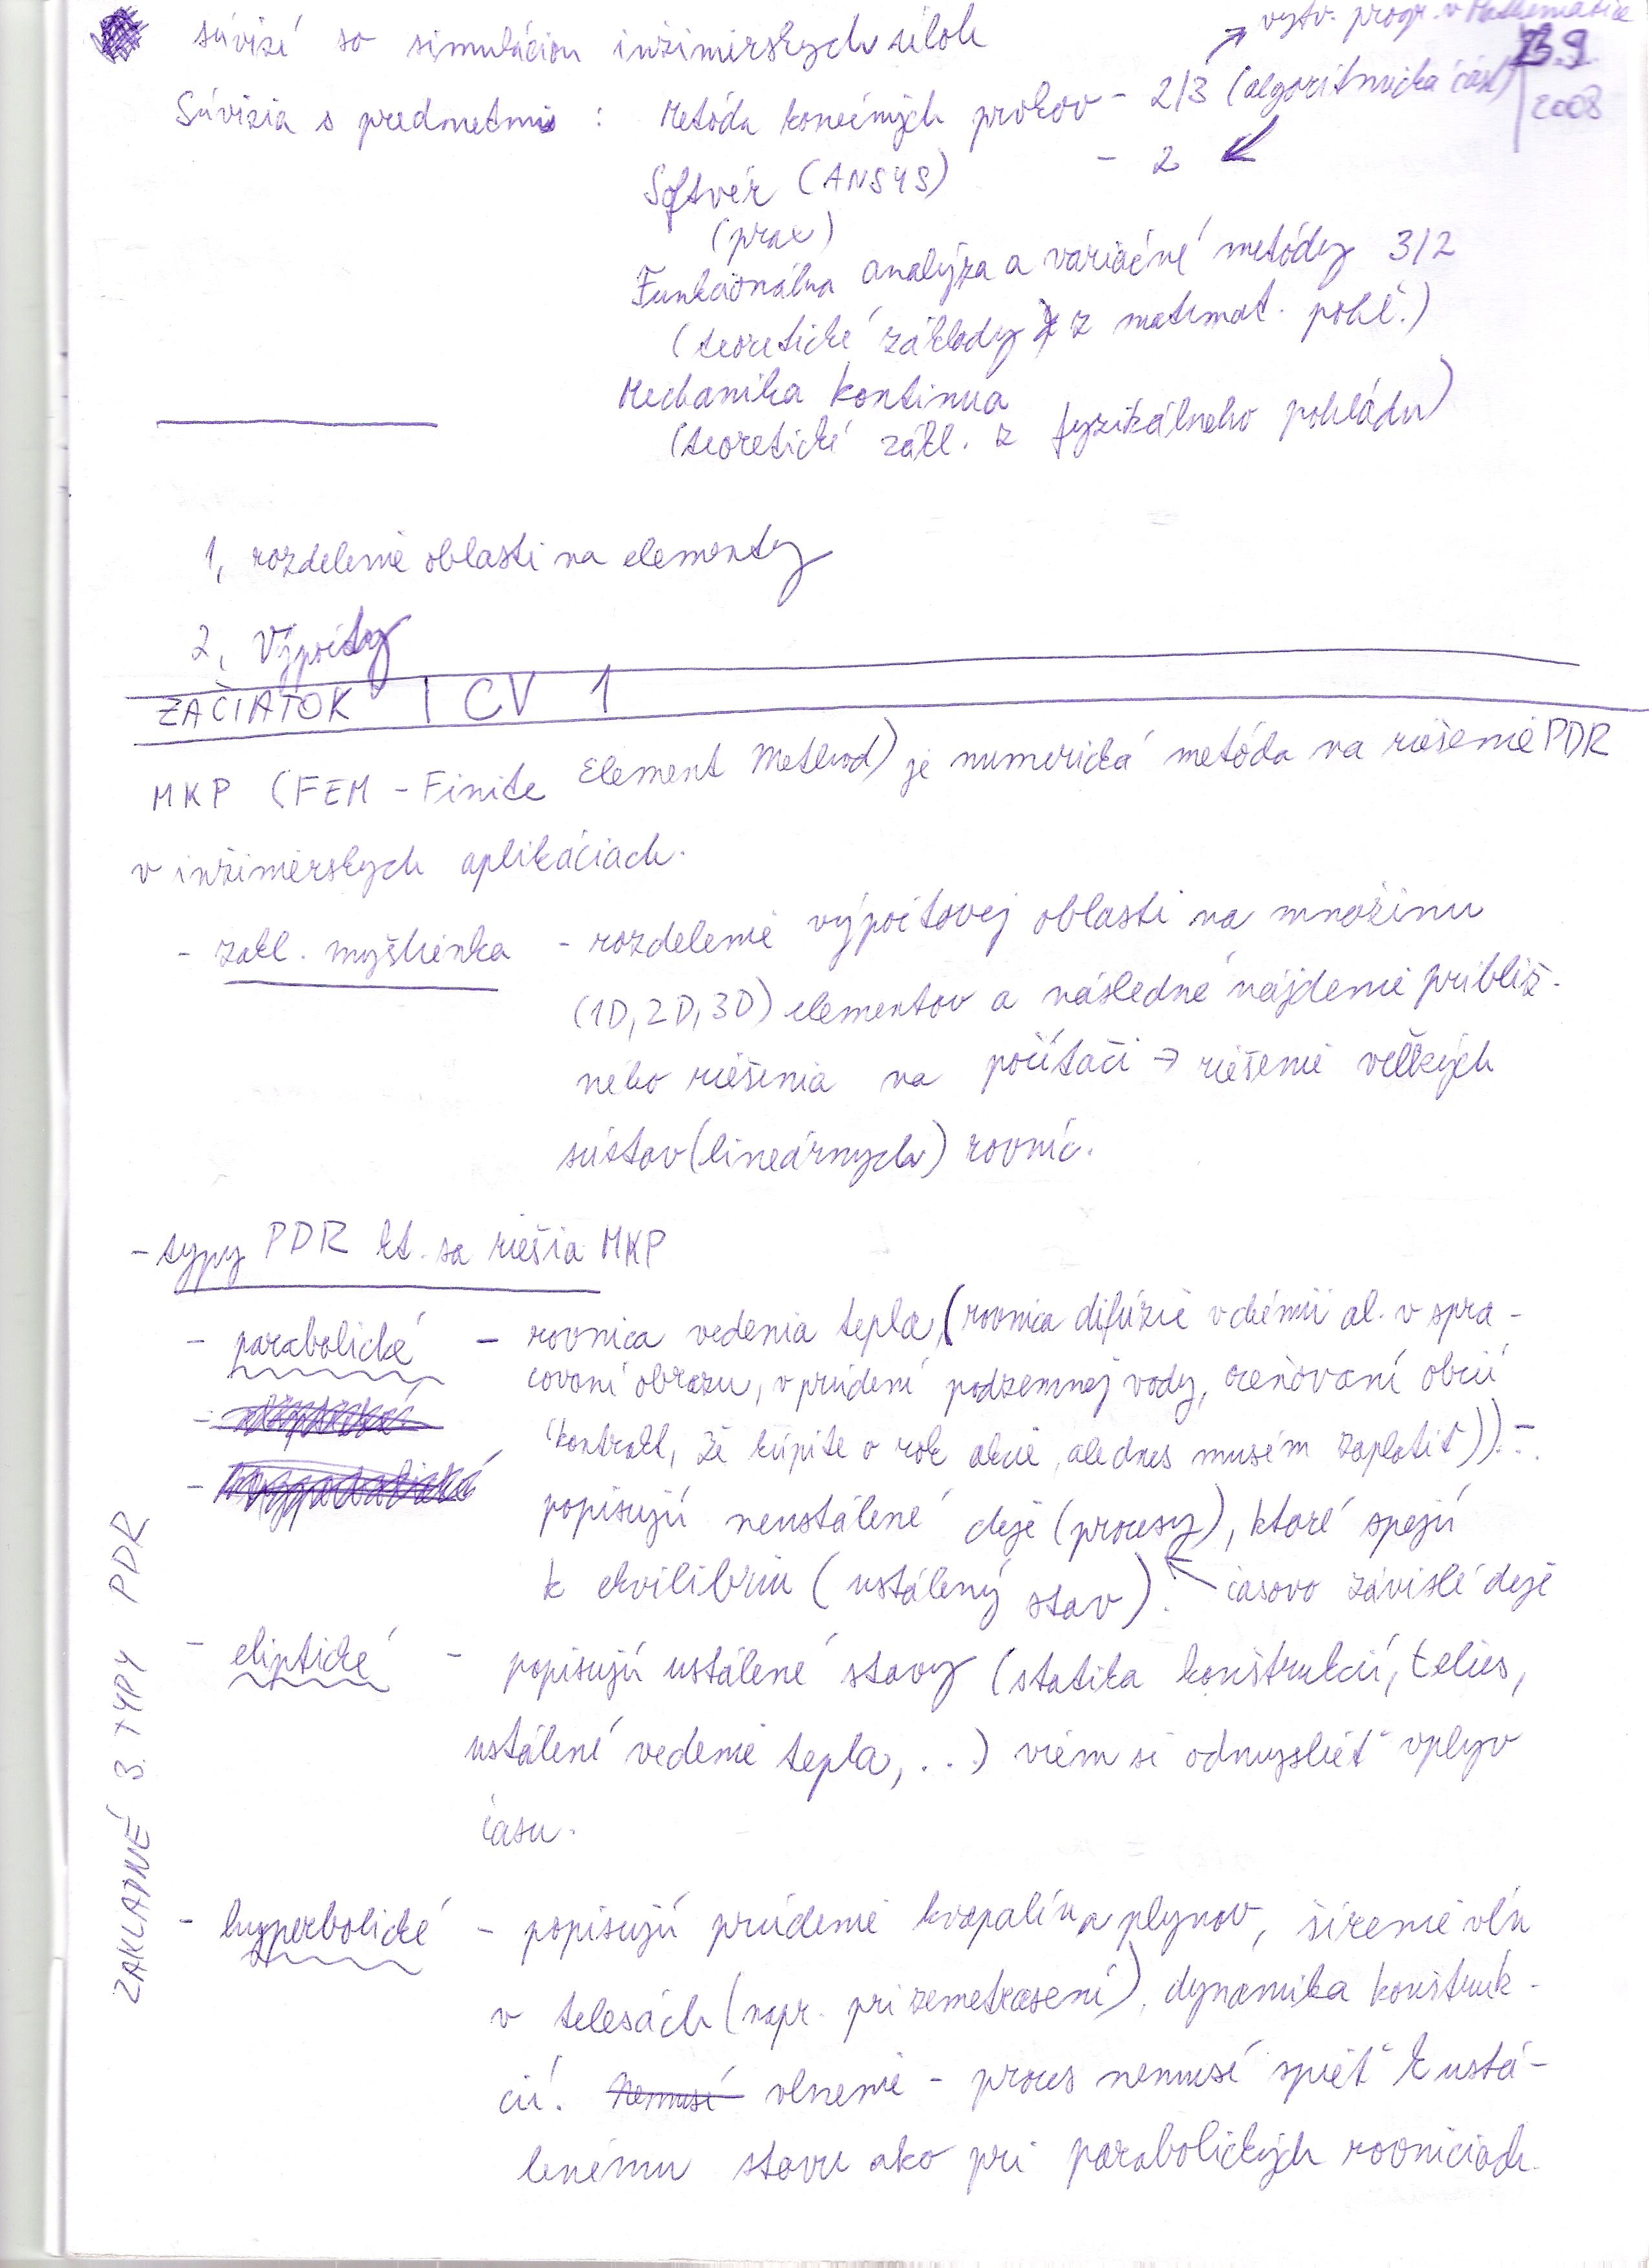 ↗ vytv. progr. v Mathematice
súvisí so simuláciou inžinierskych úloh
23.9.
2008
Súvisia s predmetmi : Metóda konečných prvkov - 2/3 (algoritmická časť)
Softvér (ANSYS) - 2
(prax)
Funkcionálna analýza a variačné metódy 3/2
(teoretické základy z matemat. pohľ.)
Mechanika kontinua
(teoretické zákl. z fyzikálneho pohľadu)
1, rozdelenie oblasti na elementy
2, Výpočty
ZAČIATOK | CV 1
MKP (FEM - Finite Element Method) je numerická metóda na riešenie PDR
v inžinierskych aplikáciach.
- zákl. myšlienka - rozdelenie výpočtovej oblasti na množinu
(1D, 2D, 3D) elementov a následné nájdenie približ-
ného riešenia na počítači → riešenie veľkých
sústav (lineárnych) rovníc.
- typy PDR kt. sa riešia MKP
- parabolické - rovnica vedenia tepla, (rovnica difúzie v chémii al. v spra-
covaní obrazu, v prúdení podzemnej vody, oceňovaní obcií
(kontrakt, že kúpite o rok akcie, ale dnes musím zaplatiť)).-
popisujú neustálené deje (procesy), ktoré spejú
k ekvilibriu (ustálený stav). časovo závislé deje
- eliptické - popisujú ustálené stavy (statika konštrukcií, telies,
ustálené vedenie tepla, ...) viem si odmyslieť vplyv
času.
- hyperbolické - popisujú prúdenie kvapalín a plynov, šírenie vĺn
v telesách (napr. pri zemetrasení), dynamika konštruk-
cií. Nemusí vlnenie - proces nemusí spieť k ustá-
lenému stavu ako pri parabolických rovniciach.
ZÁKLADNÉ 3. TYPY PDR